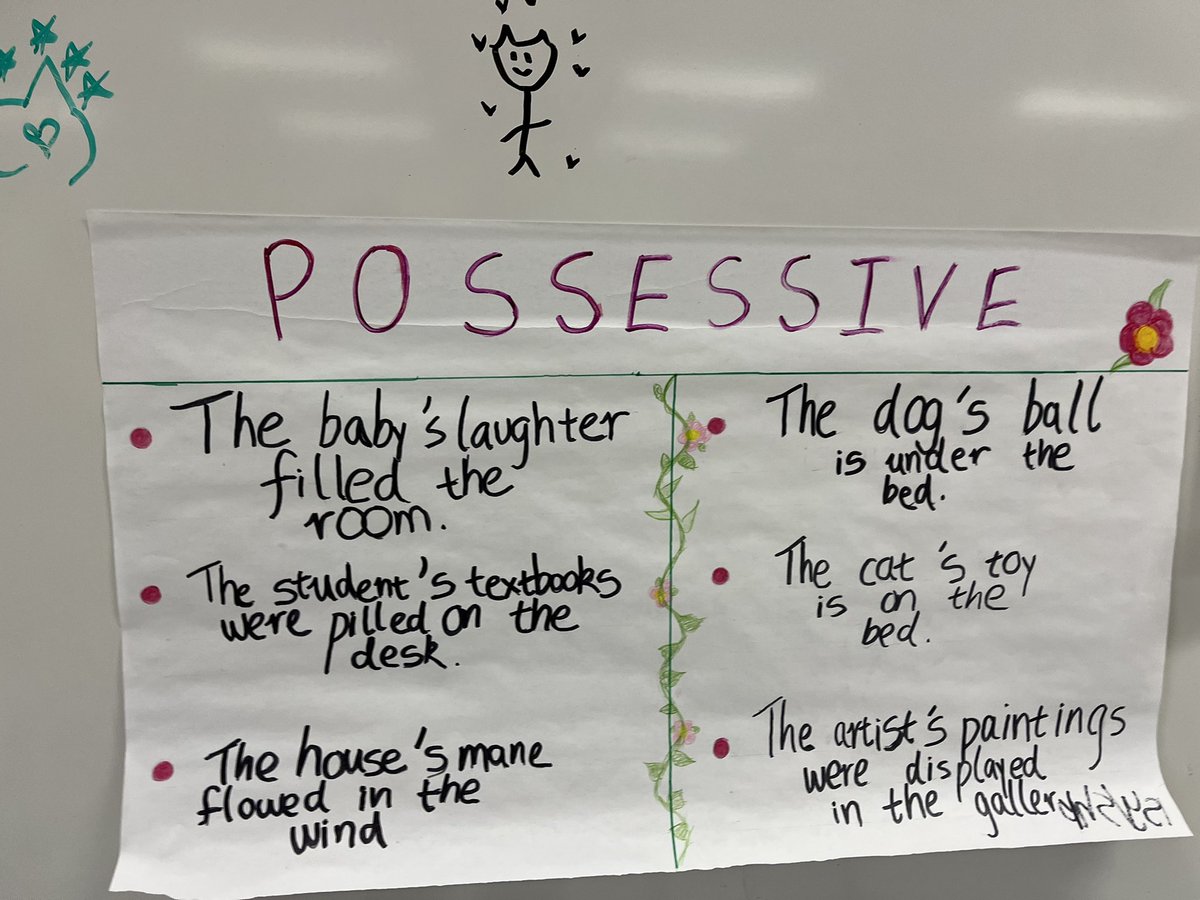 POSSESSIVE
The baby's laughter
filled the
room.
The student's textbooks
were pilled on the
desk.
The house's mane
flowed in the
wind
The dog's ball
is under the
bed.
The cat's toy
is on the
bed.
The artist's paintings
were displayed
in the